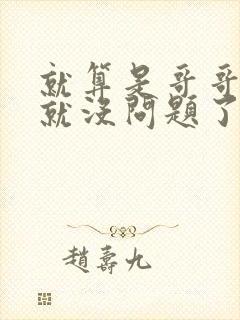 就算是哥哥
就沒問題了
趙壽九